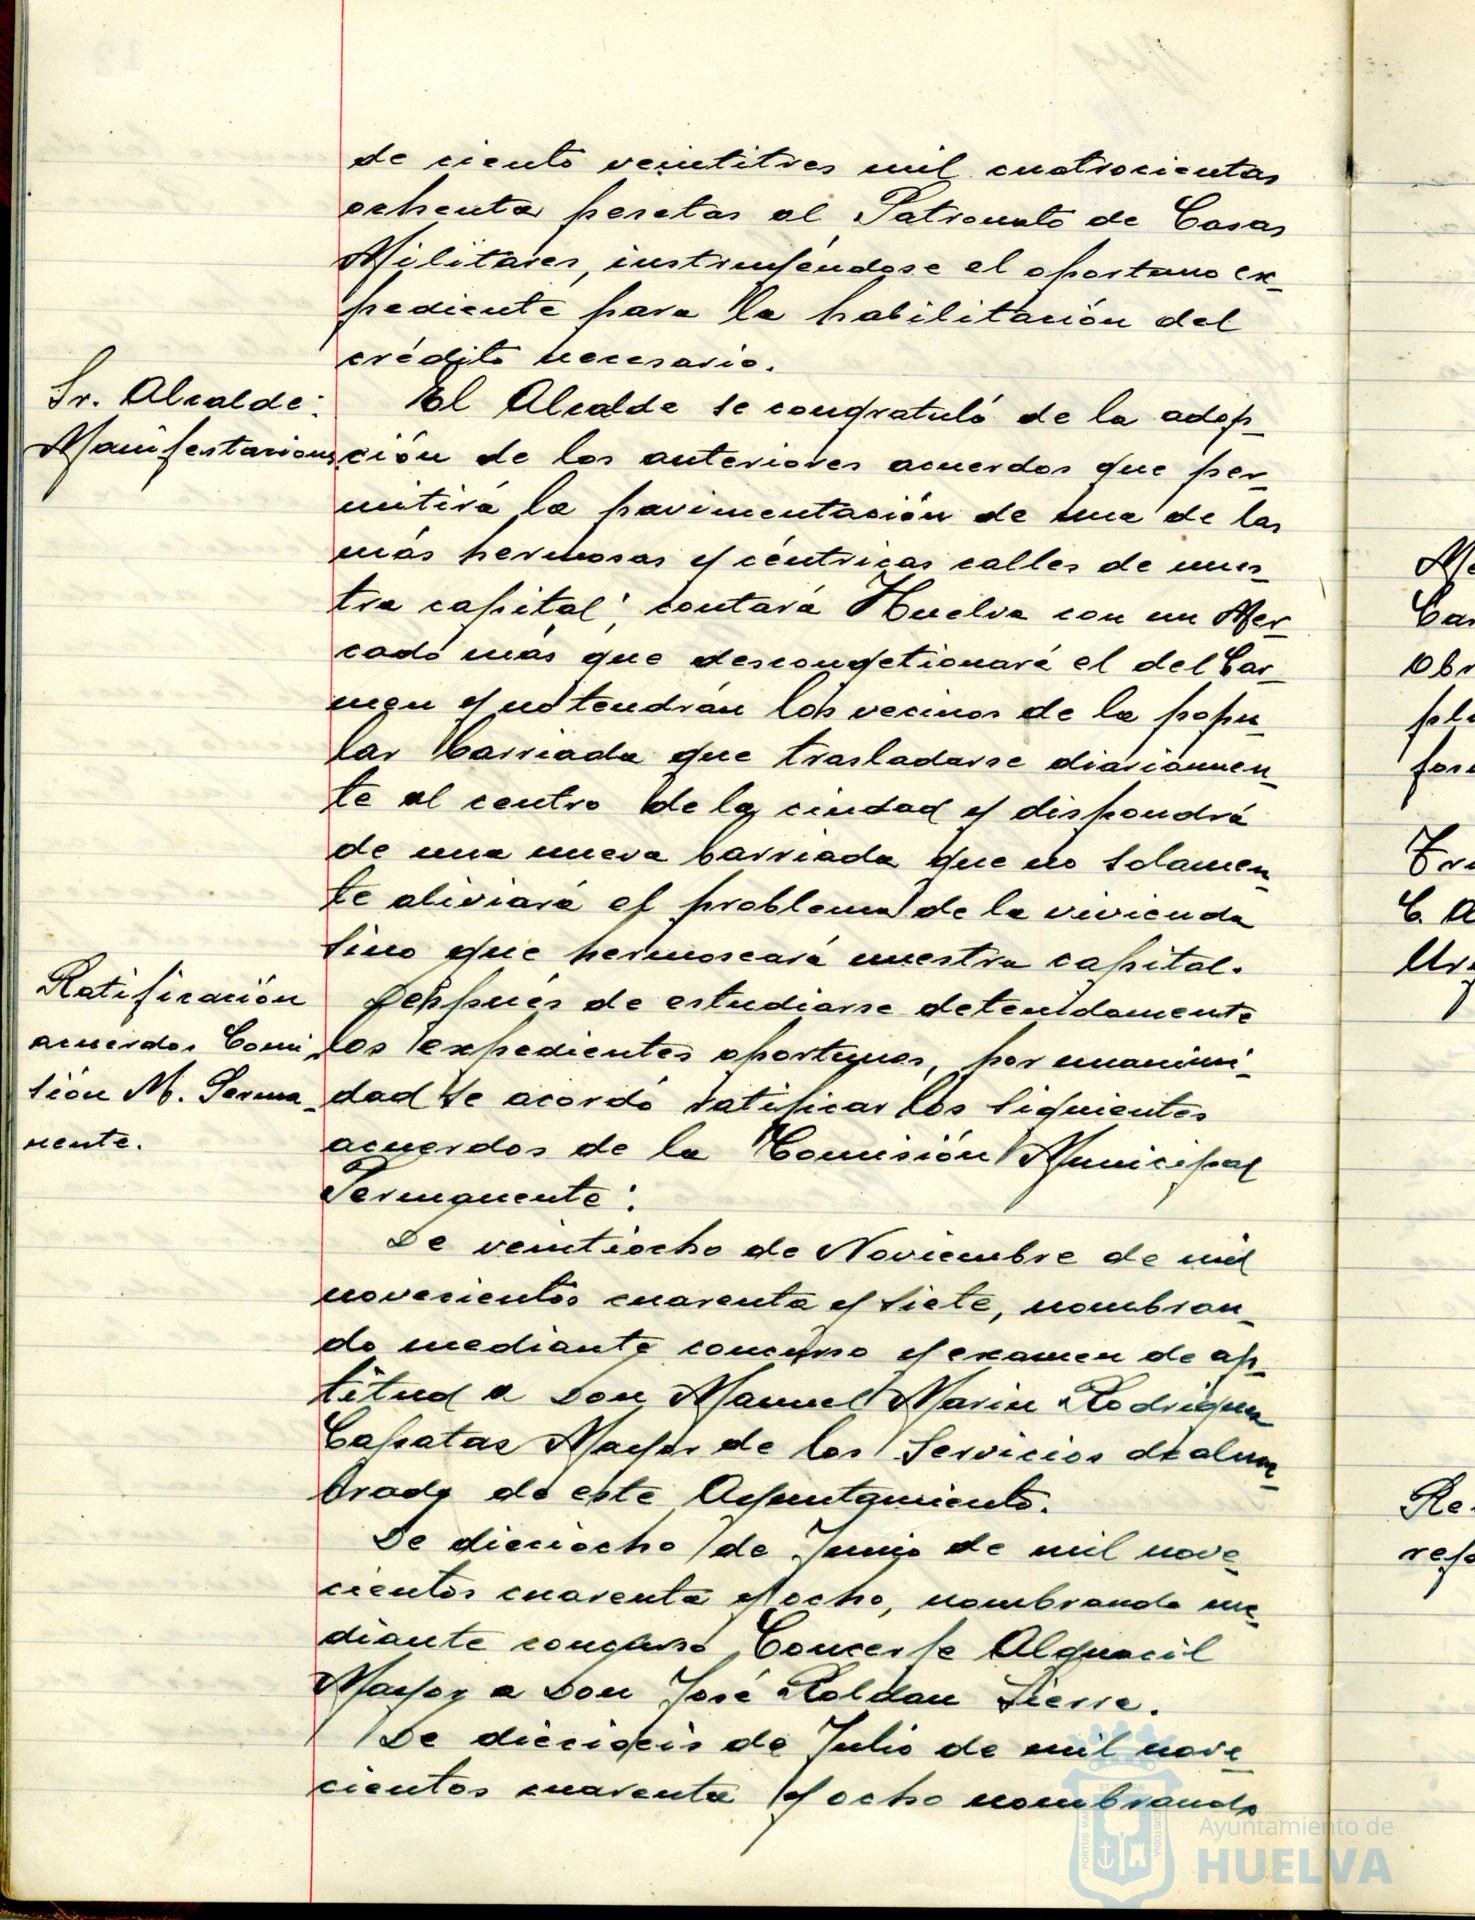 de ciento veintitres mil cuatrocientas
ochenta pesetas al Patronato de Casas
Militares, instruyéndose el oportuno ex-
pediente para la habilitación del
crédito necesario.
Sr. Alcalde:
Manifestaciones
El Alcalde se congratuló de la adop-
ción de los anteriores acuerdos que per-
mitirá la pavimentación de una de las
más hermosas y céntricas calles de nues-
tra capital; contará Huelva con un Mer-
cado más que descongetionará el del Car-
men y no tendrán los vecinos de la popu-
lar barriada que trasladarse diariamen-
te al centro de la ciudad y dispondrá
de una nueva barriada que no solamen-
te aliviará el problema de la vivienda
sino que hermoseará nuestra capital.
Ratificación
acuerdos Comi-
sión M. Perma-
nente.
Después de estudiarse detenidamente
los expedientes oportunos, por unanimi-
dad se acordó ratificar los siguientes
acuerdos de la Comisión Municipal
Permanente:
De veintiocho de Noviembre de mil
novecientos cuarenta y siete, nombran-
do mediante concurso y examen de ap-
titud a Don Manuel Marin Rodriguez
Capataz Mayor de los Servicios de alum-
brado de este Ayuntamiento.
De dieciocho de Junio de mil nove-
cientos cuarenta y ocho, nombrando me-
diante concurso Conserje Alguacil
Mayor a Don José Roldan Sierra.
De dieciseis de Julio de mil nove-
cientos cuarenta y ocho nombrando
Ayuntamiento de
HUELVA